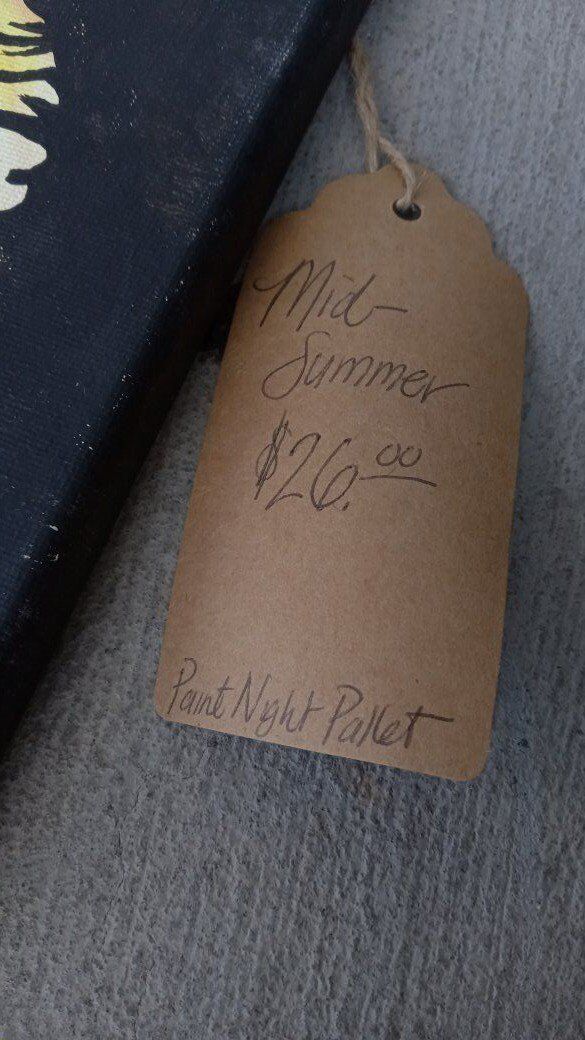 Mid-
Summer
$26.00
Paint Night Pallet